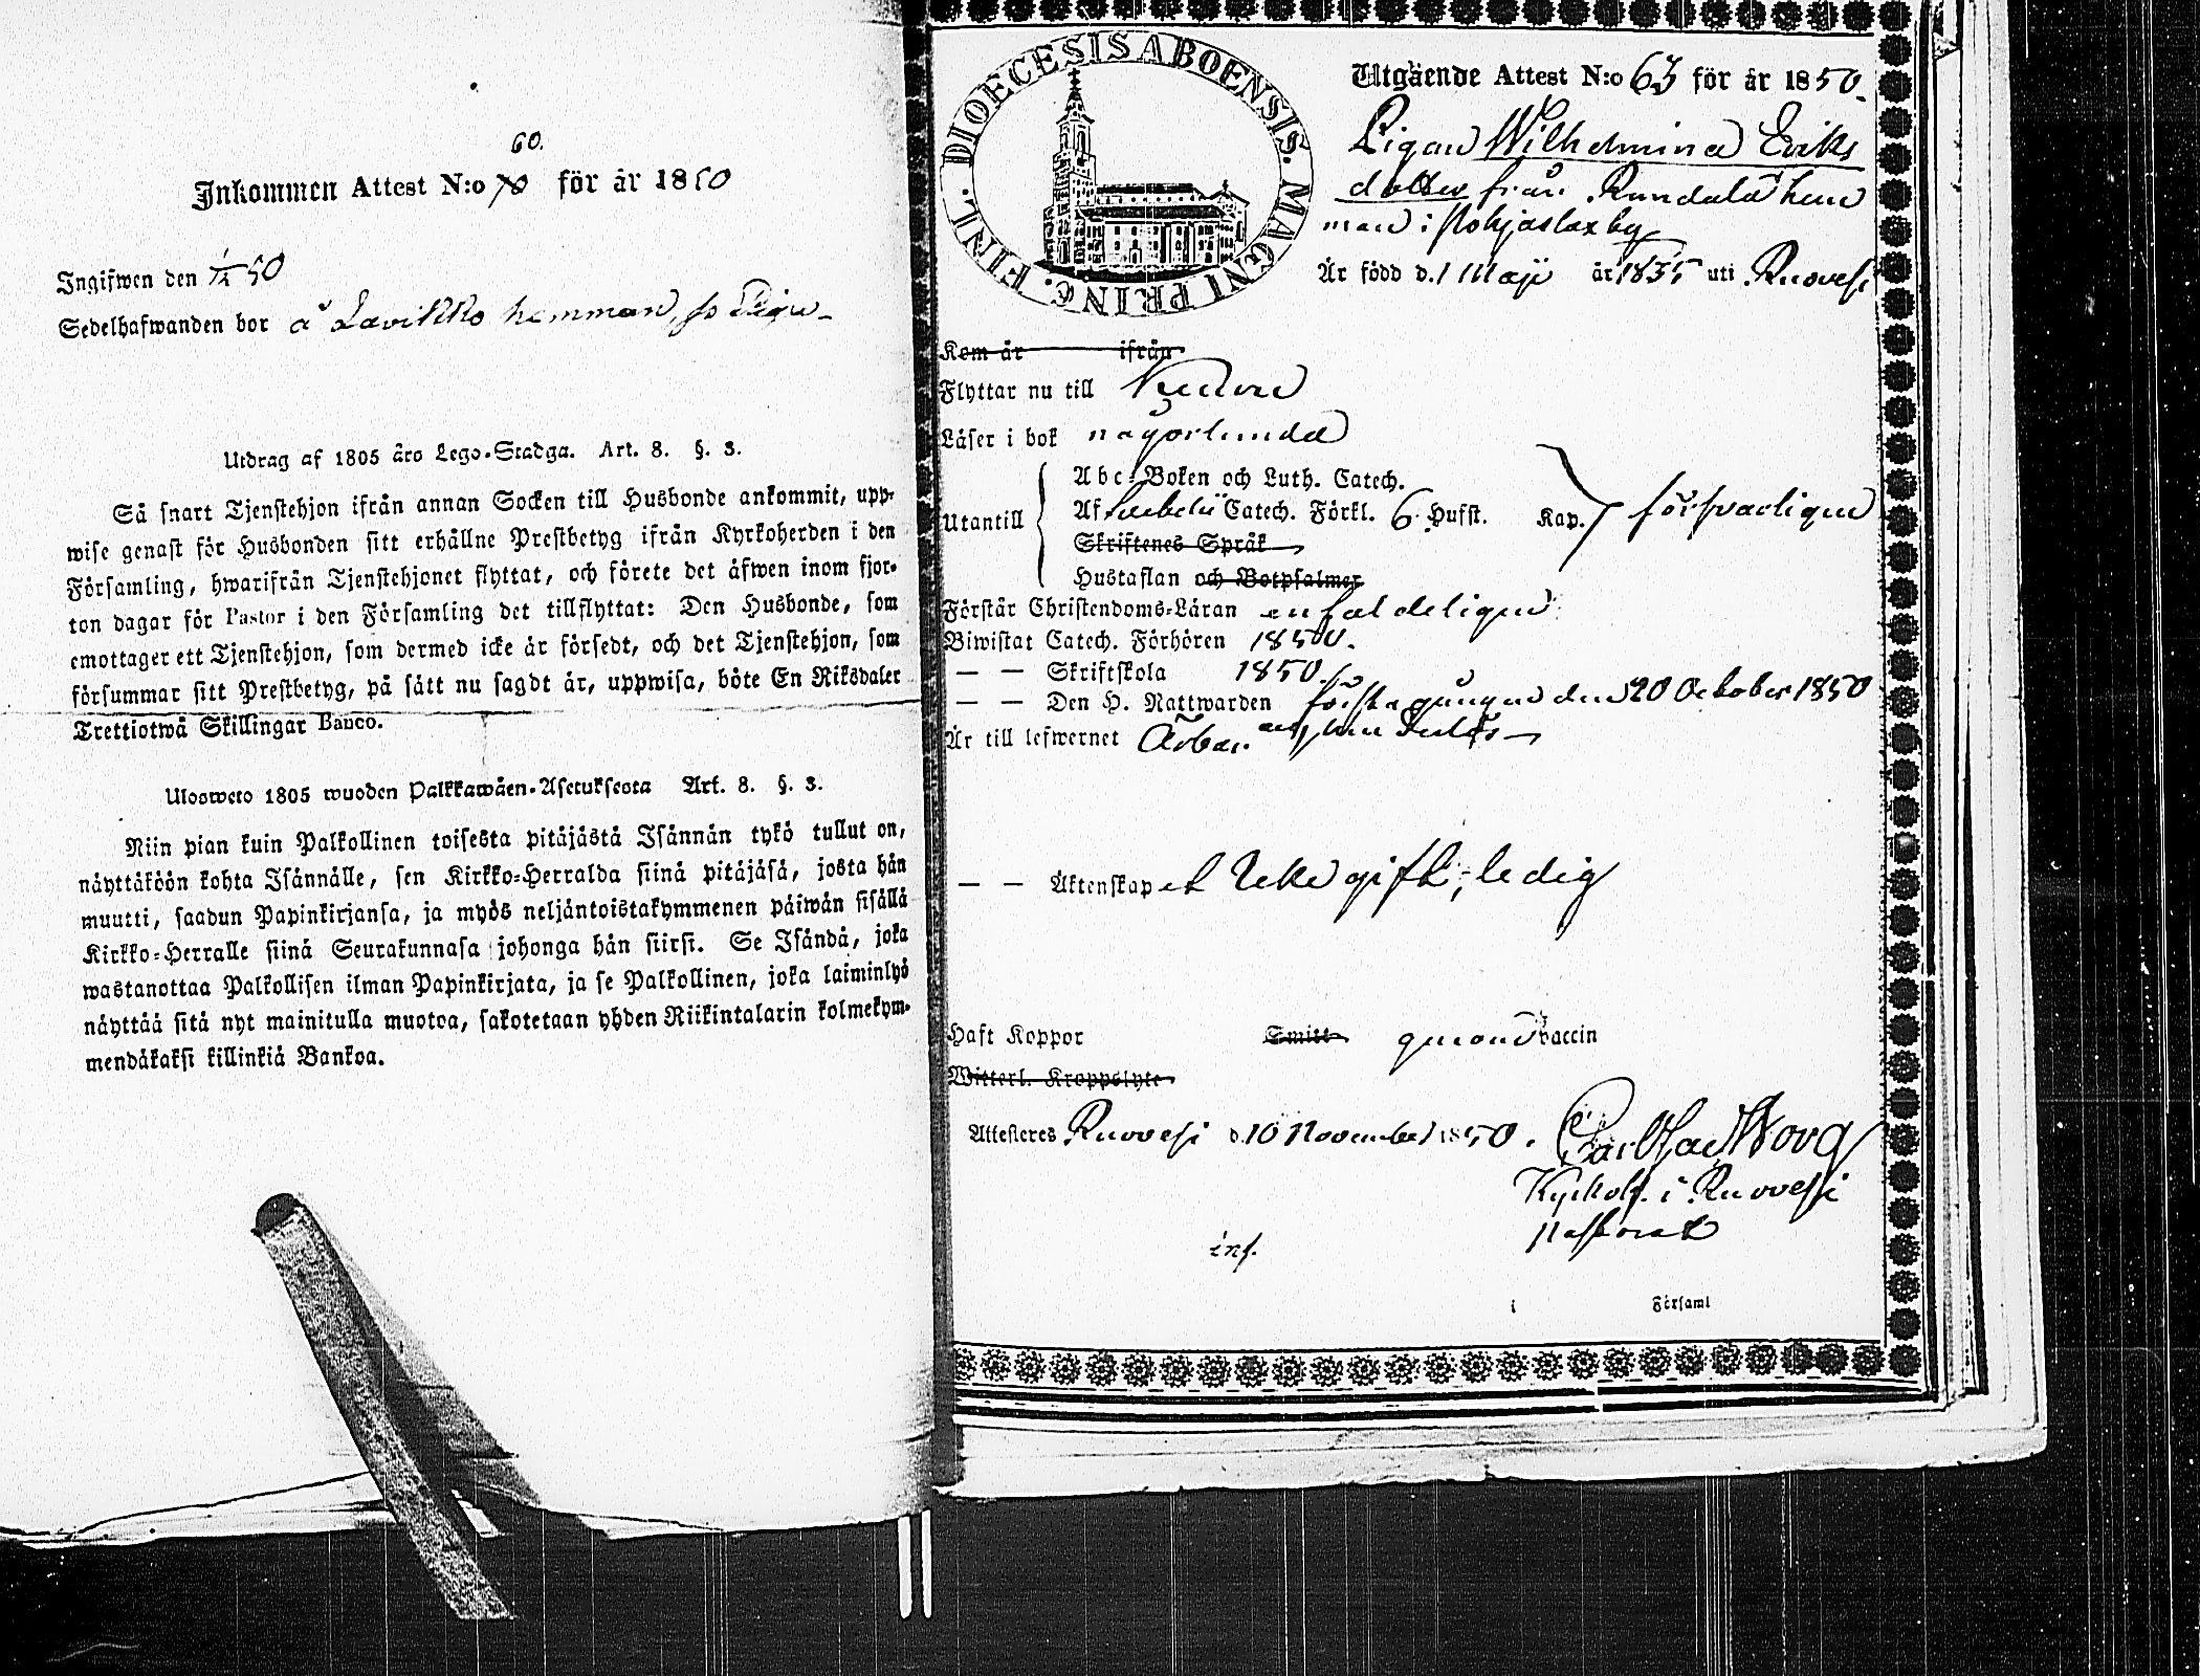 60.
Inkommen Attest N:o 70 för år 1850
Ingifwen den 1/12 50
Sedelhafwanden bor å Lavikko hemman, ss Piga
Utdrag af 1805 års Lego-Stadga. Art. 8. §. 3.
Så snart Tjenstehjon ifrån annan Socken till Husbonde ankommit, upp-
wise genast för Husbonden sitt erhållne Prestbetyg ifrån Kyrkoherden i den
Församling, hwarifrån Tjenstehjonet flyttat, och förete det äfwen inom fjor-
ton dagar för Pastor i den Församling det tillflyttat: Den Husbonde, som
emottager ett Tjenstehjon, som dermed icke är försedt, och det Tjenstehjon, som
försummar sitt Prestbetyg, på sätt nu sagdt är, uppwisa, böte En Riksdaler
Trettiotwå Skillingar Banco.
Ulosweto 1805 wuoden Palkkawäen-Asetuksesta Art. 8. §. 3.
Niin pian kuin Palkollinen toisesta pitäjästä Isännän tykö tullut on,
näyttäköön kohta Isännälle, sen Kirkko-Herralda siinä pitäjäsä, josta hän
muutti, saadun Papinkirjansa, ja myös neljäntoistakymmenen päiwän sisällä
Kirkko-Herralle siinä Seurakunnasa johonga hän siirsi. Se Isändä, joka
wastanottaa Palkollisen ilman Papinkirjata, ja se Palkollinen, joka laiminlyö
näyttää sitä nyt mainitulla muotoa, sakotetaan yhden Riikintalarin kolmekym-
mendäkaksi killinkiä Bankoa.
DIOECESIS ABOENSIS. MAGNI PRINC. FINL.
Utgående Attest N:o 63 för år 1850.
Pigan Wilhelmina Eriks
dotter från Rundala hem
man i Pohjaslax by
Är född d. 1 Maji år 1835 uti Ruovesi
Kom år ifrån
Flyttar nu till
Läser i bok någorlunda
Utantill
Abc-Boken och Luth. Catech.
Af Svebelii Catech. Förkl. 6 Hufst. Kap. försvarligen
Skriftenes Språk
Hustaflan och Botpsalmer
Förstår Christendoms-Läran enfaldeligen
Biwistat Catech. Förhören 1850.
— — Skriftskola 1850.
— — Den H. Nattwarden första gången den 20 October 1850
Är till lefwernet Ärbar
— — Äktenskapet Icke gift, ledig
Haft Koppor Smitt genom Vaccin
Witterl. Kroppslyte
Attesteras Ruovesi d. 10 November 1850. Carl Borg
Kyrkoh. i Ruovesi
Pastorat
inf.
i Församl